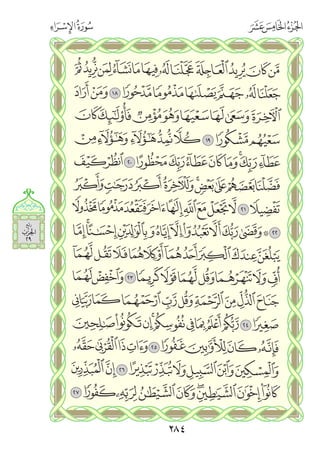 الجزء الخامس عشر
سورة الإسراء
مَّن كَانَ يُرِيدُ ٱلۡعَاجِلَةَ عَجَّلۡنَا لَهُۥ فِيهَا مَا نَشَآءُ لِمَن نُّرِيدُ ثُمَّ
جَعَلۡنَا لَهُۥ جَهَنَّمَ يَصۡلَىٰهَا مَذۡمُومٗا مَّدۡحُورٗا ١٨ وَمَنۡ أَرَادَ
ٱلۡأٓخِرَةَ وَسَعَىٰ لَهَا سَعۡيَهَا وَهُوَ مُؤۡمِنٞ فَأُوْلَٰٓئِكَ كَانَ
سَعۡيُهُم مَّشۡكُورٗا ١٩ كُلّٗا نُّمِدُّ هَٰٓؤُلَآءِ وَهَٰٓؤُلَآءِ مِنۡ
عَطَآءِ رَبِّكَۚ وَمَا كَانَ عَطَآءُ رَبِّكَ مَحۡظُورًا ٢٠ ٱنظُرۡ كَيۡفَ
فَضَّلۡنَا بَعۡضَهُمۡ عَلَىٰ بَعۡضٖۚ وَلَلۡأٓخِرَةُ أَكۡبَرُ دَرَجَٰتٖ وَأَكۡبَرُ
تَفۡضِيلٗا ٢١ لَّا تَجۡعَلۡ مَعَ ٱللَّهِ إِلَٰهًا ءَاخَرَ فَتَقۡعُدَ مَذۡمُومٗا مَّخۡذُولٗا
٢٢ ۞ وَقَضَىٰ رَبُّكَ أَلَّا تَعۡبُدُوٓاْ إِلَّآ إِيَّاهُ وَبِٱلۡوَٰلِدَيۡنِ إِحۡسَٰنًاۚ إِمَّا
يَبۡلُغَنَّ عِندَكَ ٱلۡكِبَرَ أَحَدُهُمَآ أَوۡ كِلَاهُمَا فَلَا تَقُل لَّهُمَآ
أُفّٖ وَلَا تَنۡهَرۡهُمَا وَقُل لَّهُمَا قَوۡلٗا كَرِيمٗا ٢٣ وَٱخۡفِضۡ لَهُمَا
جَنَاحَ ٱلذُّلِّ مِنَ ٱلرَّحۡمَةِ وَقُل رَّبِّ ٱرۡحَمۡهُمَا كَمَا رَبَّيَانِي
صَغِيرٗا ٢٤ رَّبُّكُمۡ أَعۡلَمُ بِمَا فِي نُفُوسِكُمۡۚ إِن تَكُونُواْ صَٰلِحِينَ
فَإِنَّهُۥ كَانَ لِلۡأَوَّٰبِينَ غَفُورٗا ٢٥ وَءَاتِ ذَا ٱلۡقُرۡبَىٰ حَقَّهُۥ
وَٱلۡمِسۡكِينَ وَٱبۡنَ ٱلسَّبِيلِ وَلَا تُبَذِّرۡ تَبۡذِيرًا ٢٦ إِنَّ ٱلۡمُبَذِّرِينَ
كَانُوٓاْ إِخۡوَٰنَ ٱلشَّيَٰطِينِۖ وَكَانَ ٱلشَّيۡطَٰنُ لِرَبِّهِۦ كَفُورٗا ٢٧
الحزب
٢٩
٢٨٤